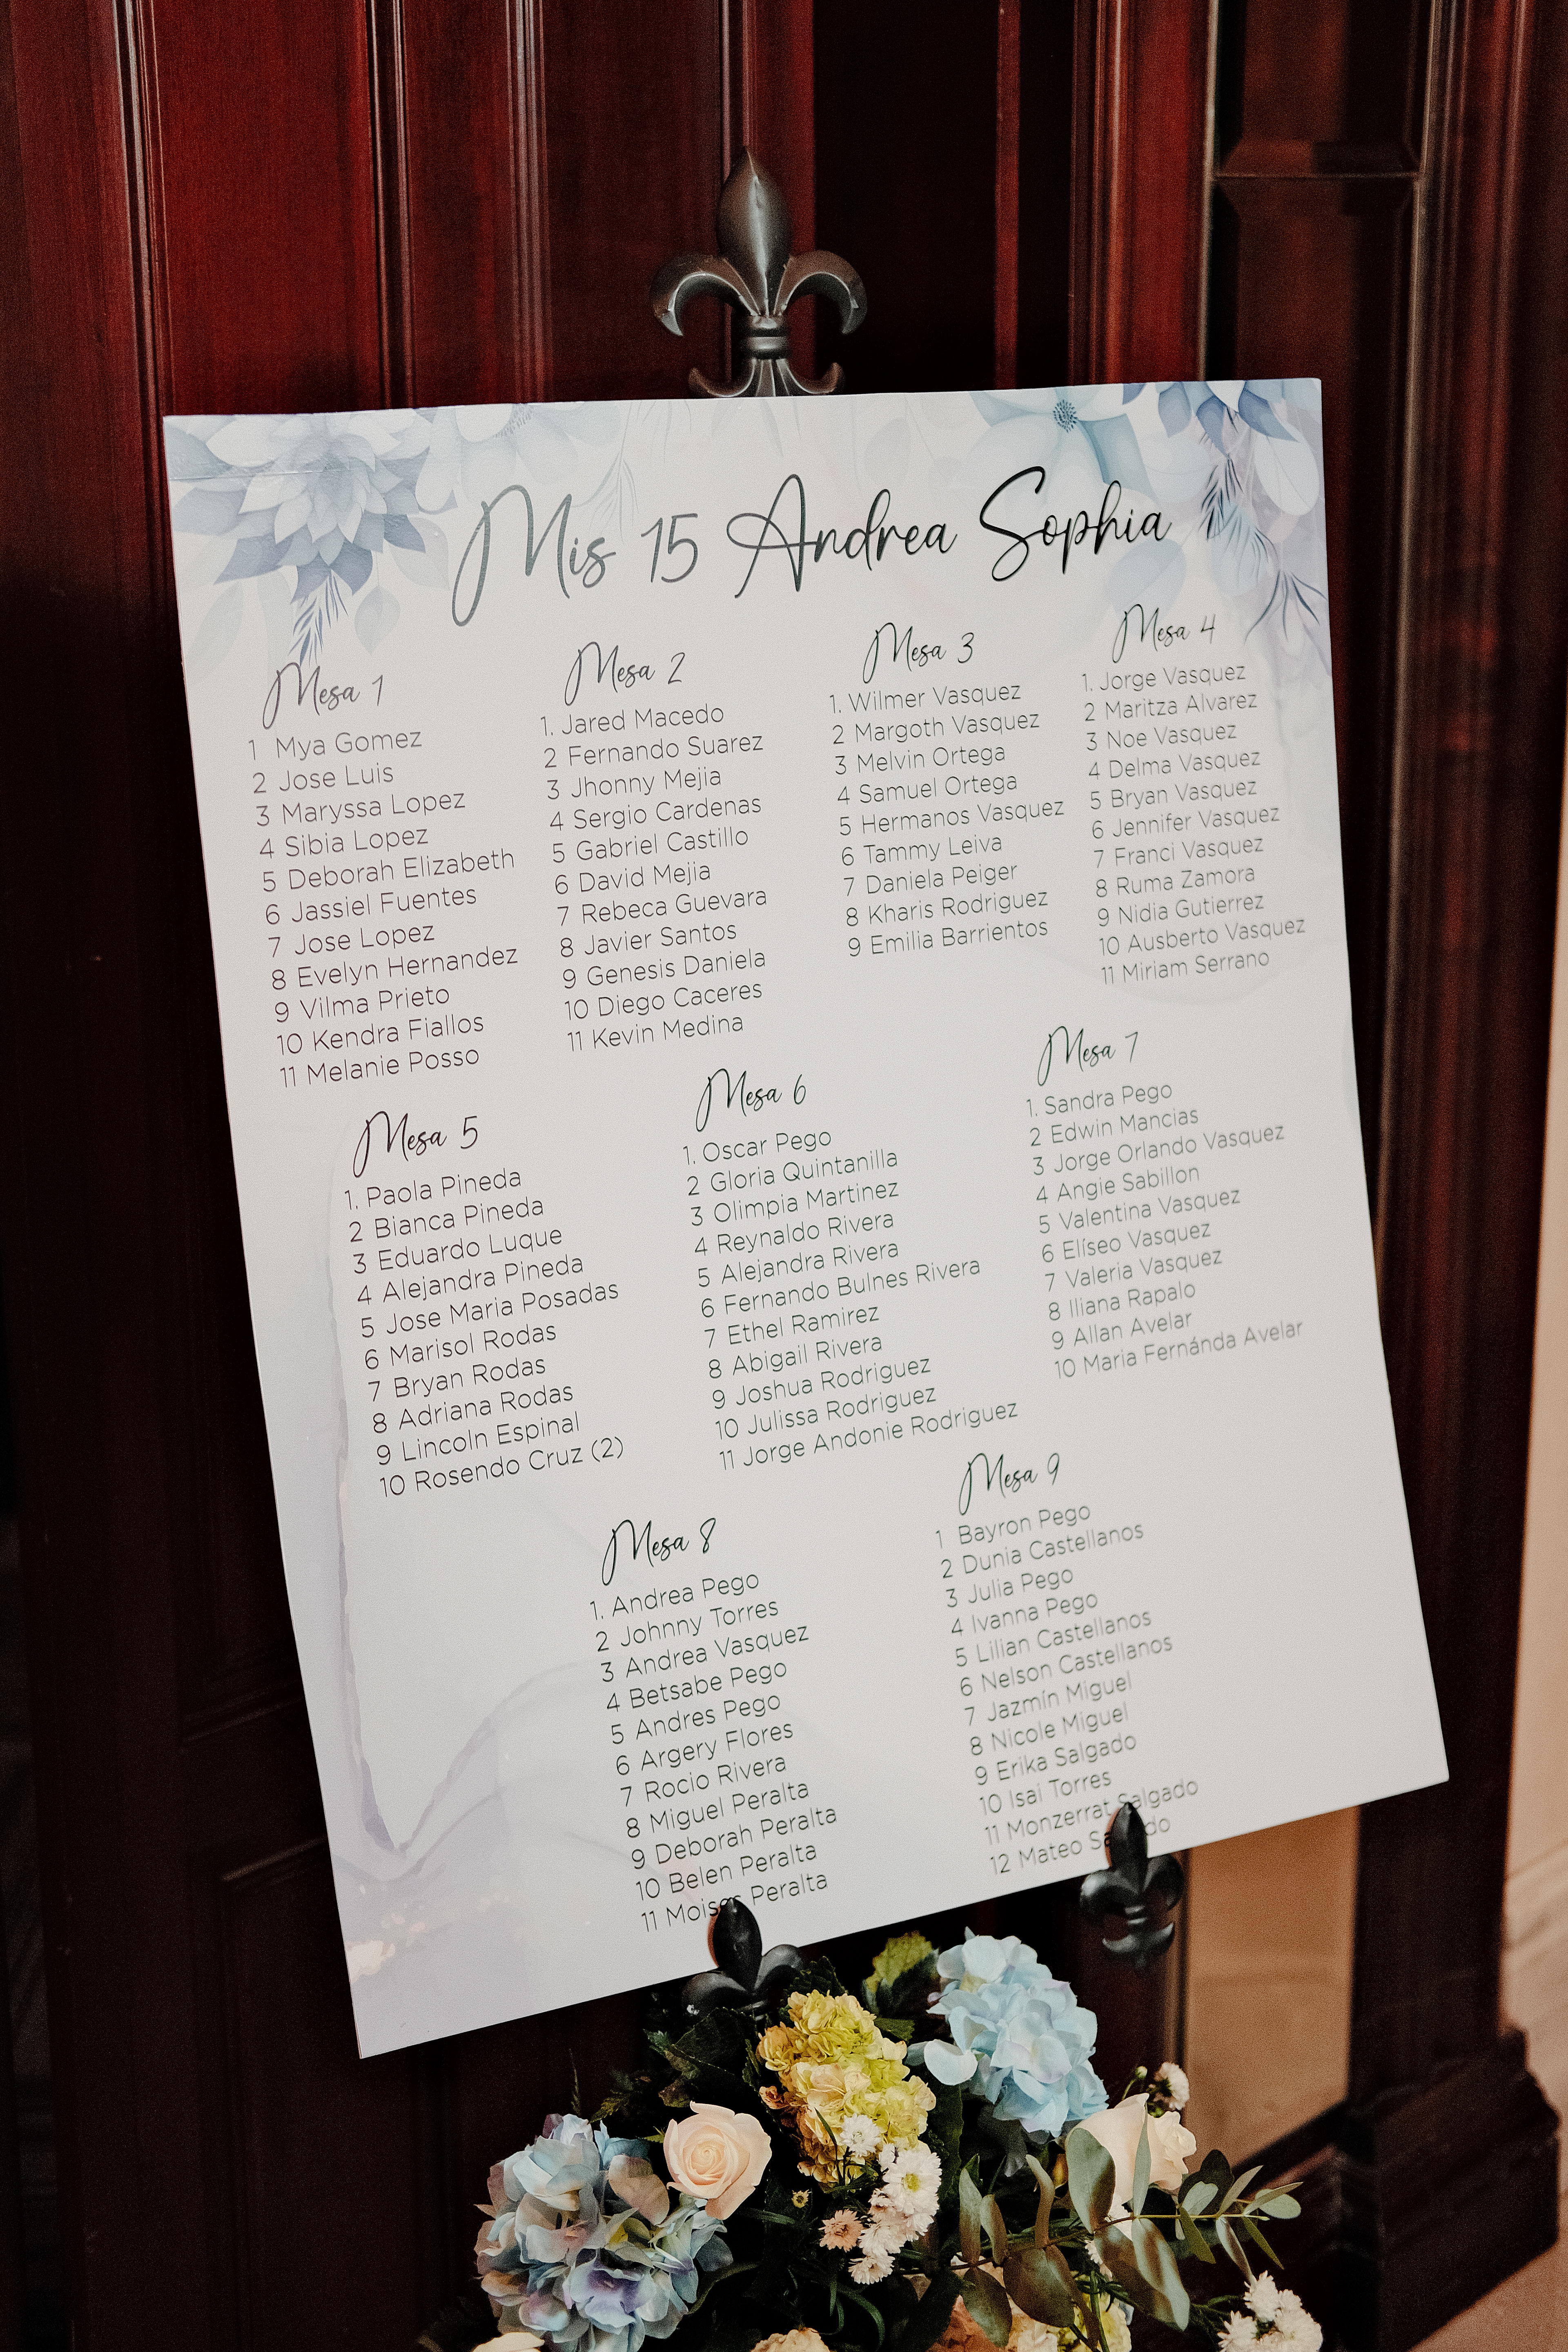 Mis 15 Andrea Sophia
Mesa 1
1 Mya Gomez
2 Jose Luis
3 Maryssa Lopez
4 Sibia Lopez
5 Deborah Elizabeth
6 Jassiel Fuentes
7 Jose Lopez
8 Evelyn Hernandez
9 Vilma Prieto
10 Kendra Fiallos
11 Melanie Posso
Mesa 2
1. Jared Macedo
2 Fernando Suarez
3 Jhonny Mejia
4 Sergio Cardenas
5 Gabriel Castillo
6 David Mejia
7 Rebeca Guevara
8 Javier Santos
9 Genesis Daniela
10 Diego Caceres
11 Kevin Medina
Mesa 3
1. Wilmer Vasquez
2 Margoth Vasquez
3 Melvin Ortega
4 Samuel Ortega
5 Hermanos Vasquez
6 Tammy Leiva
7 Daniela Peiger
8 Kharis Rodriguez
9 Emilia Barrientos
Mesa 4
1. Jorge Vasquez
2 Maritza Alvarez
3 Noe Vasquez
4 Delma Vasquez
5 Bryan Vasquez
6 Jennifer Vasquez
7 Franci Vasquez
8 Ruma Zamora
9 Nidia Gutierrez
10 Ausberto Vasquez
11 Miriam Serrano
Mesa 5
1. Paola Pineda
2 Bianca Pineda
3 Eduardo Luque
4 Alejandra Pineda
5 Jose Maria Posadas
6 Marisol Rodas
7 Bryan Rodas
8 Adriana Rodas
9 Lincoln Espinal
10 Rosendo Cruz (2)
Mesa 6
1. Oscar Pego
2 Gloria Quintanilla
3 Olimpia Martinez
4 Reynaldo Rivera
5 Alejandra Rivera
6 Fernando Bulnes Rivera
7 Ethel Ramirez
8 Abigail Rivera
9 Joshua Rodriguez
10 Julissa Rodriguez
11 Jorge Andonie Rodriguez
Mesa 7
1. Sandra Pego
2 Edwin Mancias
3 Jorge Orlando Vasquez
4 Angie Sabillon
5 Valentina Vasquez
6 Elíseo Vasquez
7 Valeria Vasquez
8 Iliana Rapalo
9 Allan Avelar
10 Maria Fernánda Avelar
Mesa 8
1. Andrea Pego
2 Johnny Torres
3 Andrea Vasquez
4 Betsabe Pego
5 Andres Pego
6 Argery Flores
7 Rocio Rivera
8 Miguel Peralta
9 Deborah Peralta
10 Belen Peralta
11 Moises Peralta
Mesa 9
1 Bayron Pego
2 Dunia Castellanos
3 Julia Pego
4 Ivanna Pego
5 Lilian Castellanos
6 Nelson Castellanos
7 Jazmín Miguel
8 Nicole Miguel
9 Erika Salgado
10 Isai Torres
11 Monzerrat Salgado
12 Mateo